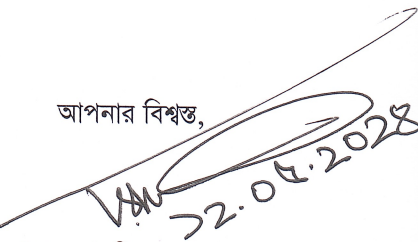 আপনার বিশ্বস্ত,
১২.০৫.২০২৪